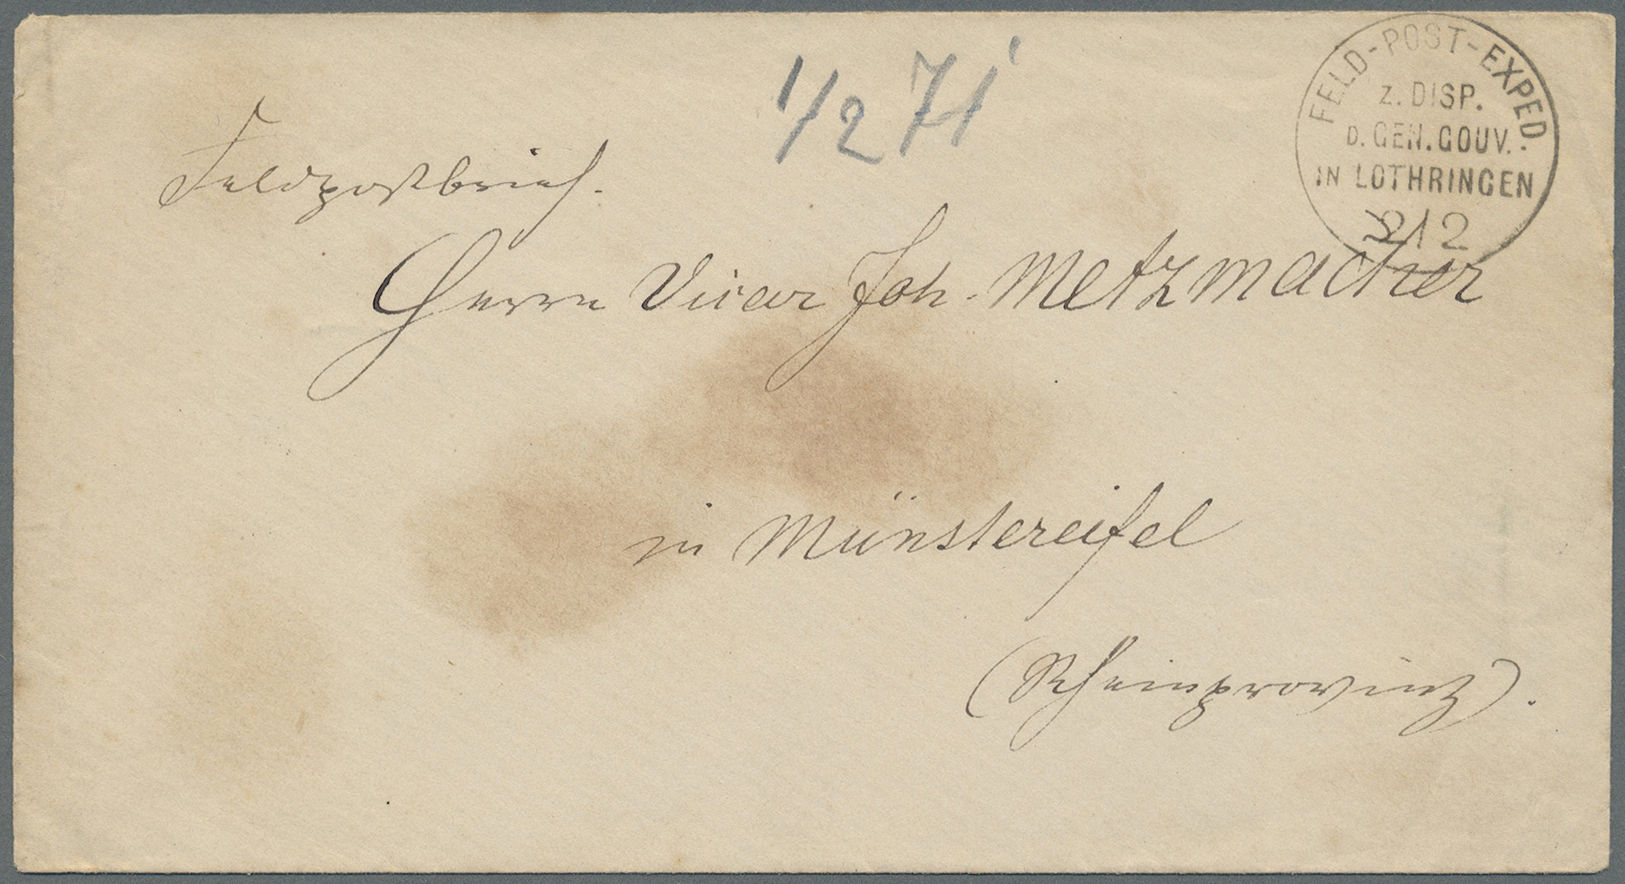 1/2 71
FELD-POST-EXPED
Z. DISP.
D. GEN. GOUV.
IN LOTHRINGEN
2/2
Feldpostbrief.
Herrn Vicar Joh. Metzmacher
in Münstereifel
(Rheinprovinz).